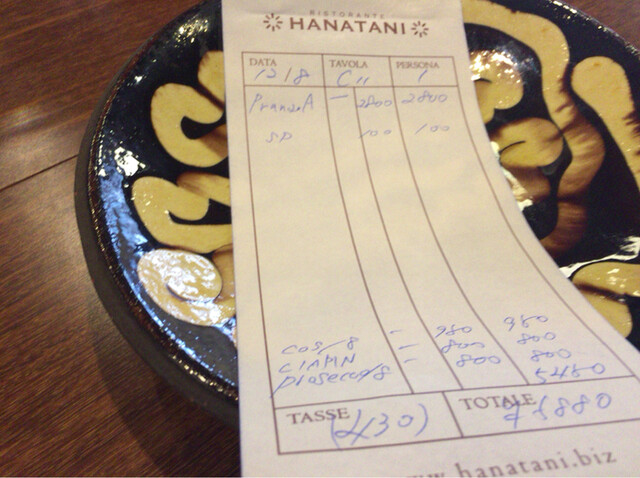 RISTORANTE
HANATANI
DATA TAVOLA PERSONA
12/8 C11 1
PranzoA - 2800 2800
SP 100 100
cos/g - 980 980
- 800 800
prosecco/g - 800 800
5480
TASSE (430) TOTALE
www.hanatani.biz